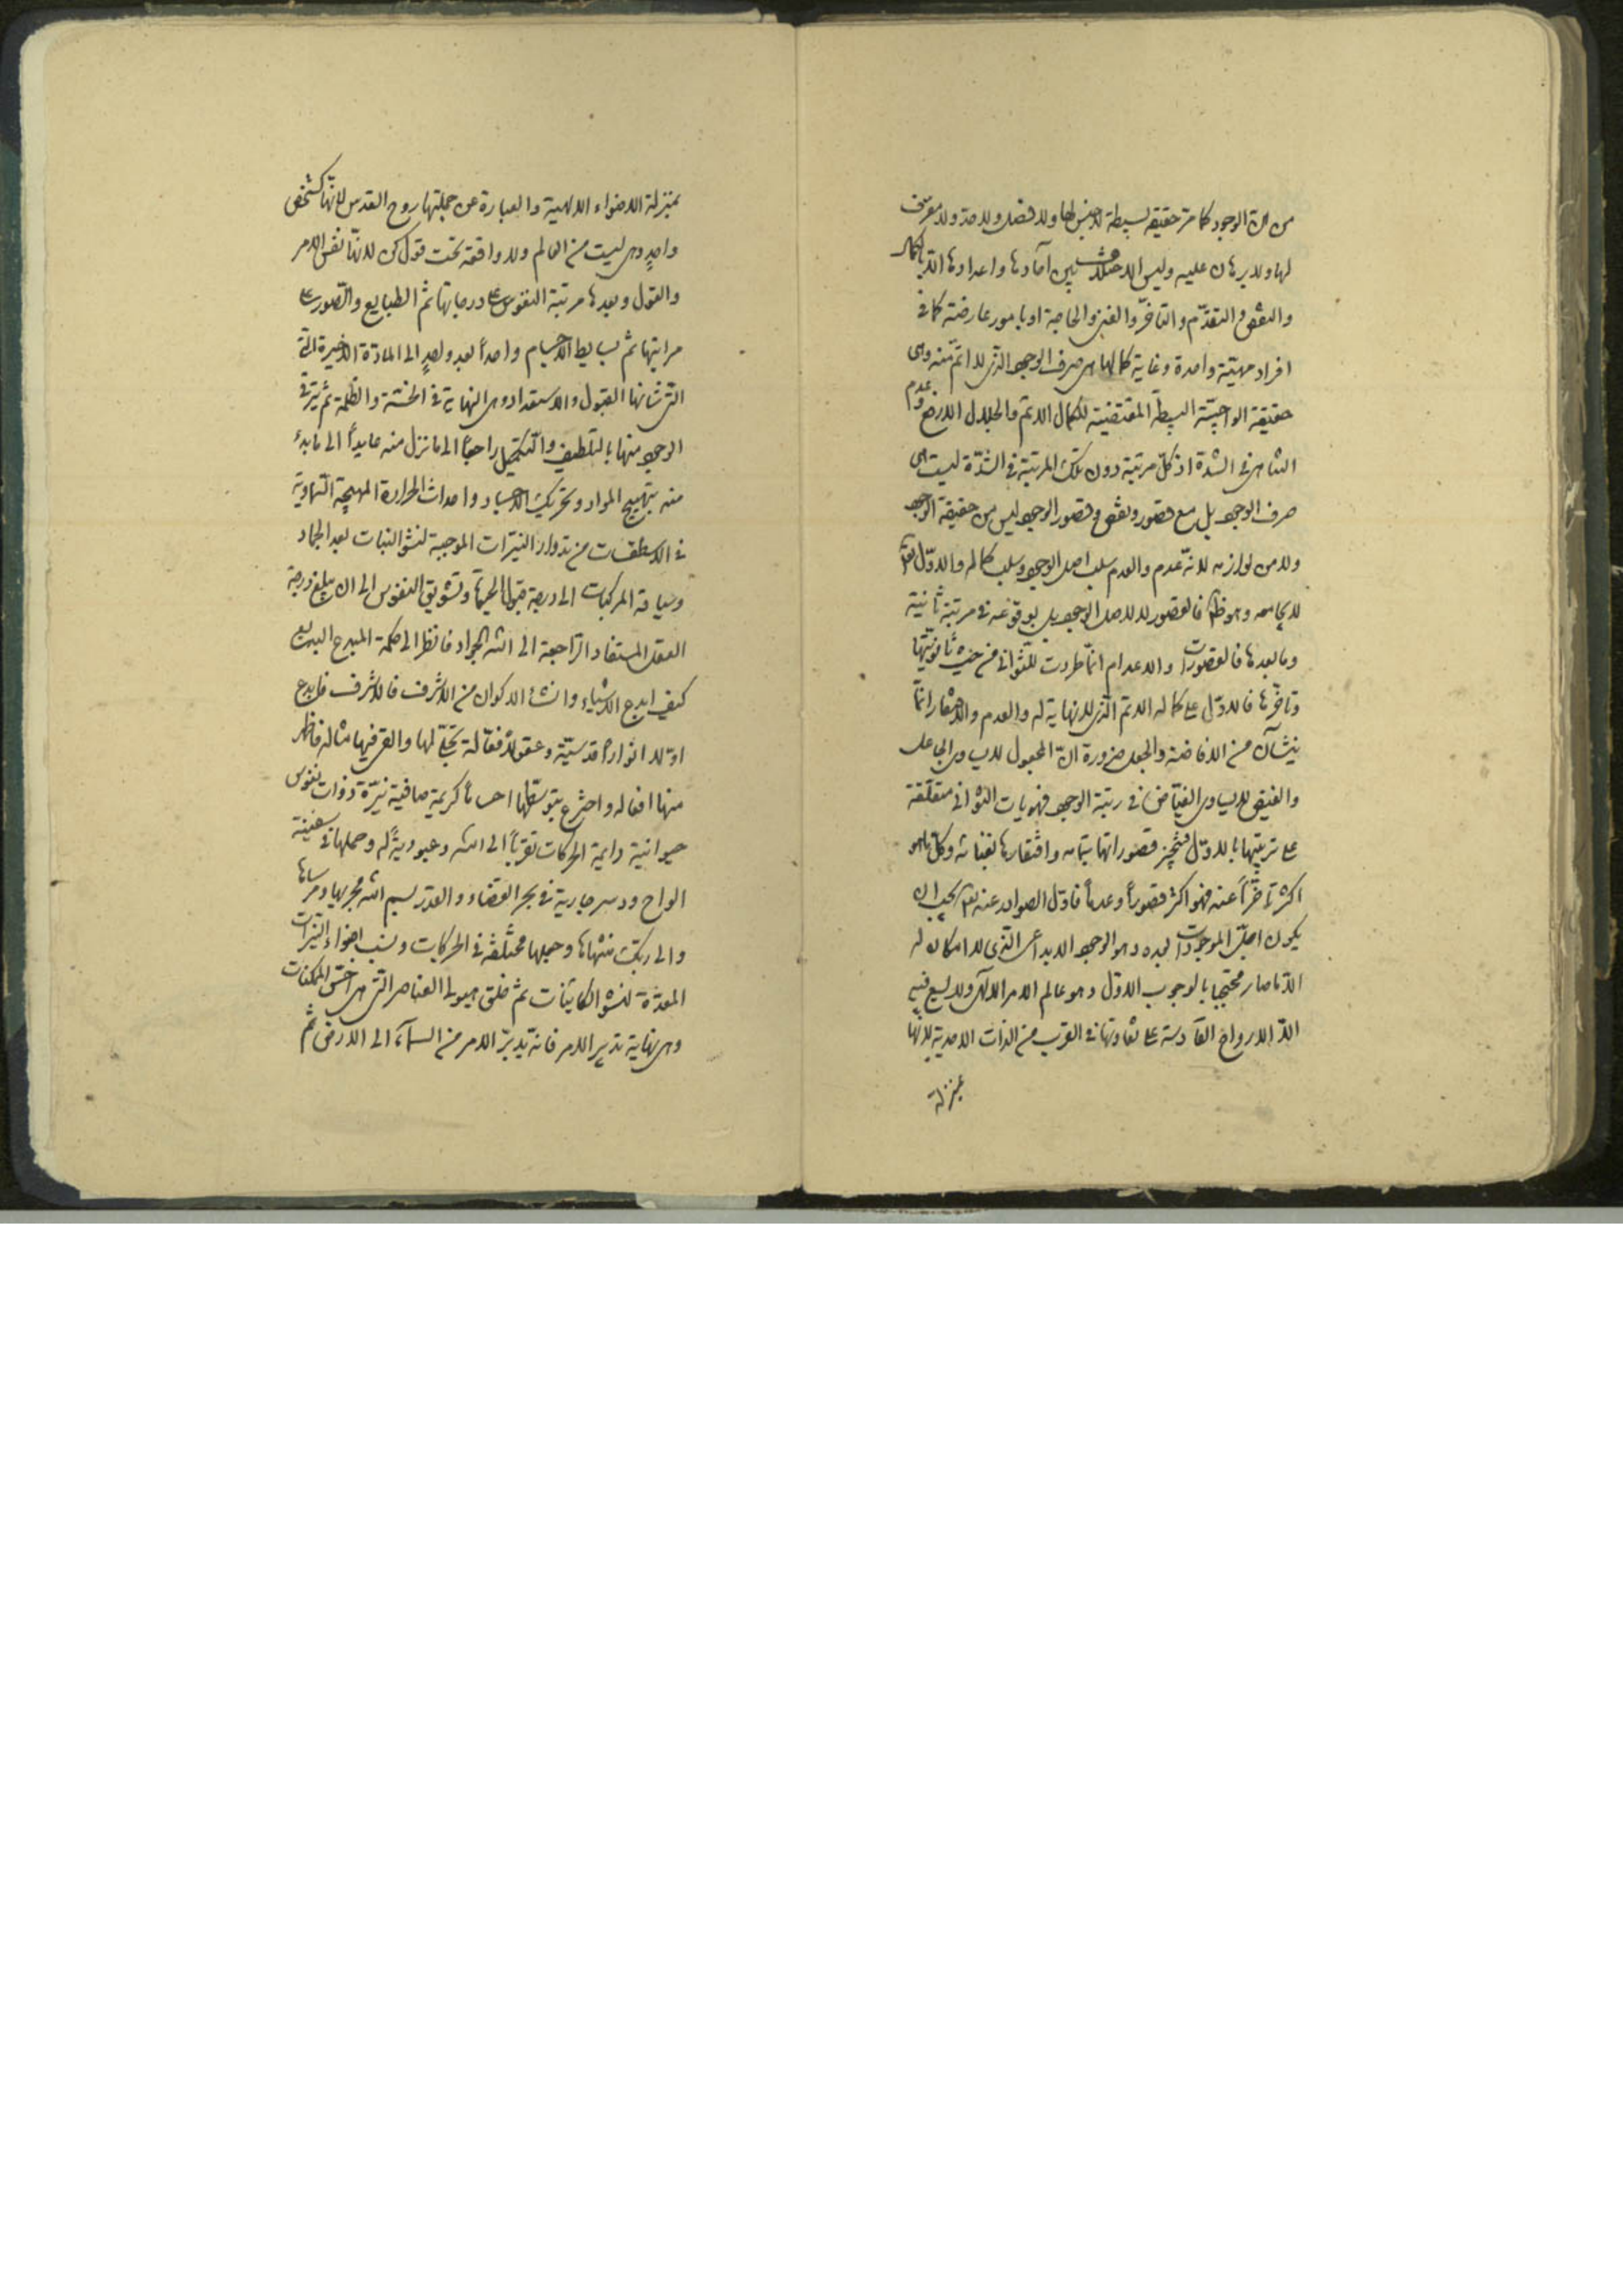 من ان الوجود كما مر حقيقه بسيطة لا جنس لها ولا فصل ولا حد ولا معرف
لها ولا برهان عليه وليس الاختلاف بين آحادها واعدادها الا بالكمال
والنقص والتقدّم والتأخّر والغنى والحاجة او بامور عارضة كما في
افراد مهيّة واحدة وغاية كمالها هي صرف الوجود الذي لا اتمّ منه وهي
حقيقة الواجبيّة البسيطة المقتضية للكمال الاتم والجلال الارفع وعدم
التناهي في الشدة اذ كلّ مرتبة دون تلك المرتبة في الشدّة ليست هي
صرف الوجود بل مع قصور ونقص وقصور الوجود ليس من حقيقة الوجود
ولا من لوازمه لانّه عدم والعدم سلب اصل الوجود وسلب كماله والاوّل تعالى
لا يجامعه وهو ظ فالقصور لا لاصل الوجود بل لوقوعه في مرتبة ثانية
وما بعدها فالقصورات والاعدام انّما طرءت للثواني من حيث ثانويّتها
وتاخّرها فالاوّل على كماله الاتم الذي لا نهاية له والعدم والافتقار انّما
ينشآن من الافاضة والجعل ضرورة انّ المجعول لا يساوي الجاعل
والفيض لا يساوي الفيّاض في رتبة الوجود فهويات الثواني متعلّقة
على ترتيبها بالاوّل فتنجبر قصوراتها بتمامه وافتقارها بغنائه وكل ما هو
اكثر تاخّراً عنه فهو اكثر قصوراً وعدماً فاوّل الصوادر عنه تعالى يجب ان
يكون اجلّ الموجودات بعده وهو الوجود الابداعي الذي لا امكان له
الا ما صار محتجبا بالوجوب الاول وهو عالم الامر الالهي ولا يسع فيه
الّا الارواح القادسة على تفاوتها في القرب من الذات الاحدية لانها
بمنزلة
بمنزلة الاضواء الالهية والعبارة عن جملتها روح القدس لانّها كشخص
واحدٍ وهي ليست من العالم ولا واقعة تحت قول كن لانّها نفس الامر
والقول وبعدها مرتبة النفوس على درجاتها ثمّ الطبايع والصور على
مراتبها ثمّ بسايط الاجسام واحداً بعد واحدٍ الى المادّة الاخيرة الّتي
التي شانها القبول والاستعداد وهي النهاية في الخسّة والظلمة ثم يترقّى
الوجود منها بالتلطيف والتكميل راجعاً الى ما نزل منه عايداً الى ما بدء
منه بتهييج المواد وتحريك الاجساد واحداث الحرارة المهيجة السّماوية
في الاسطقسات من تدوار النيّرات الموجبة لنشو النبات بعد الجماد
وسياقة المركبات الى درجة قبول الحياة وتشويق النفوس الى ان يبلغ درجة
العقل المستفاد الراجعة الى الله الجواد فانظر الى حكمة المبدع البديع
كيف ابدع الاشياء وانشا الاكوان من الاشرف فالاشرف فابدع
اوّلا انواراً قدسيّة وعقولاً فعّالة تجلّى لها والقى فيها مثاله فاظهر
منها افعاله واخترع بتوسّطها اجساماً كريمة صافية نيّرة ذوات نفوس
حيوانية دايمة الحركات تقرّباً الى الله وعبوديةً له وحملها في سفينة
الواح ودسر جارية في بحر القضاء والقدر بسم الله مجريها ومرسيها
والى ربك منتهيها وجعلها مختلفة في الحركات ونسب اضواء النيّرات
المعدّة لنشو الكاينات ثمّ خلق هيولى العناصر التي هي اخسّ الممكنات
وهي نهاية تدبير الامر فانّه يدبّر الامر من السماء الى الارض ثم